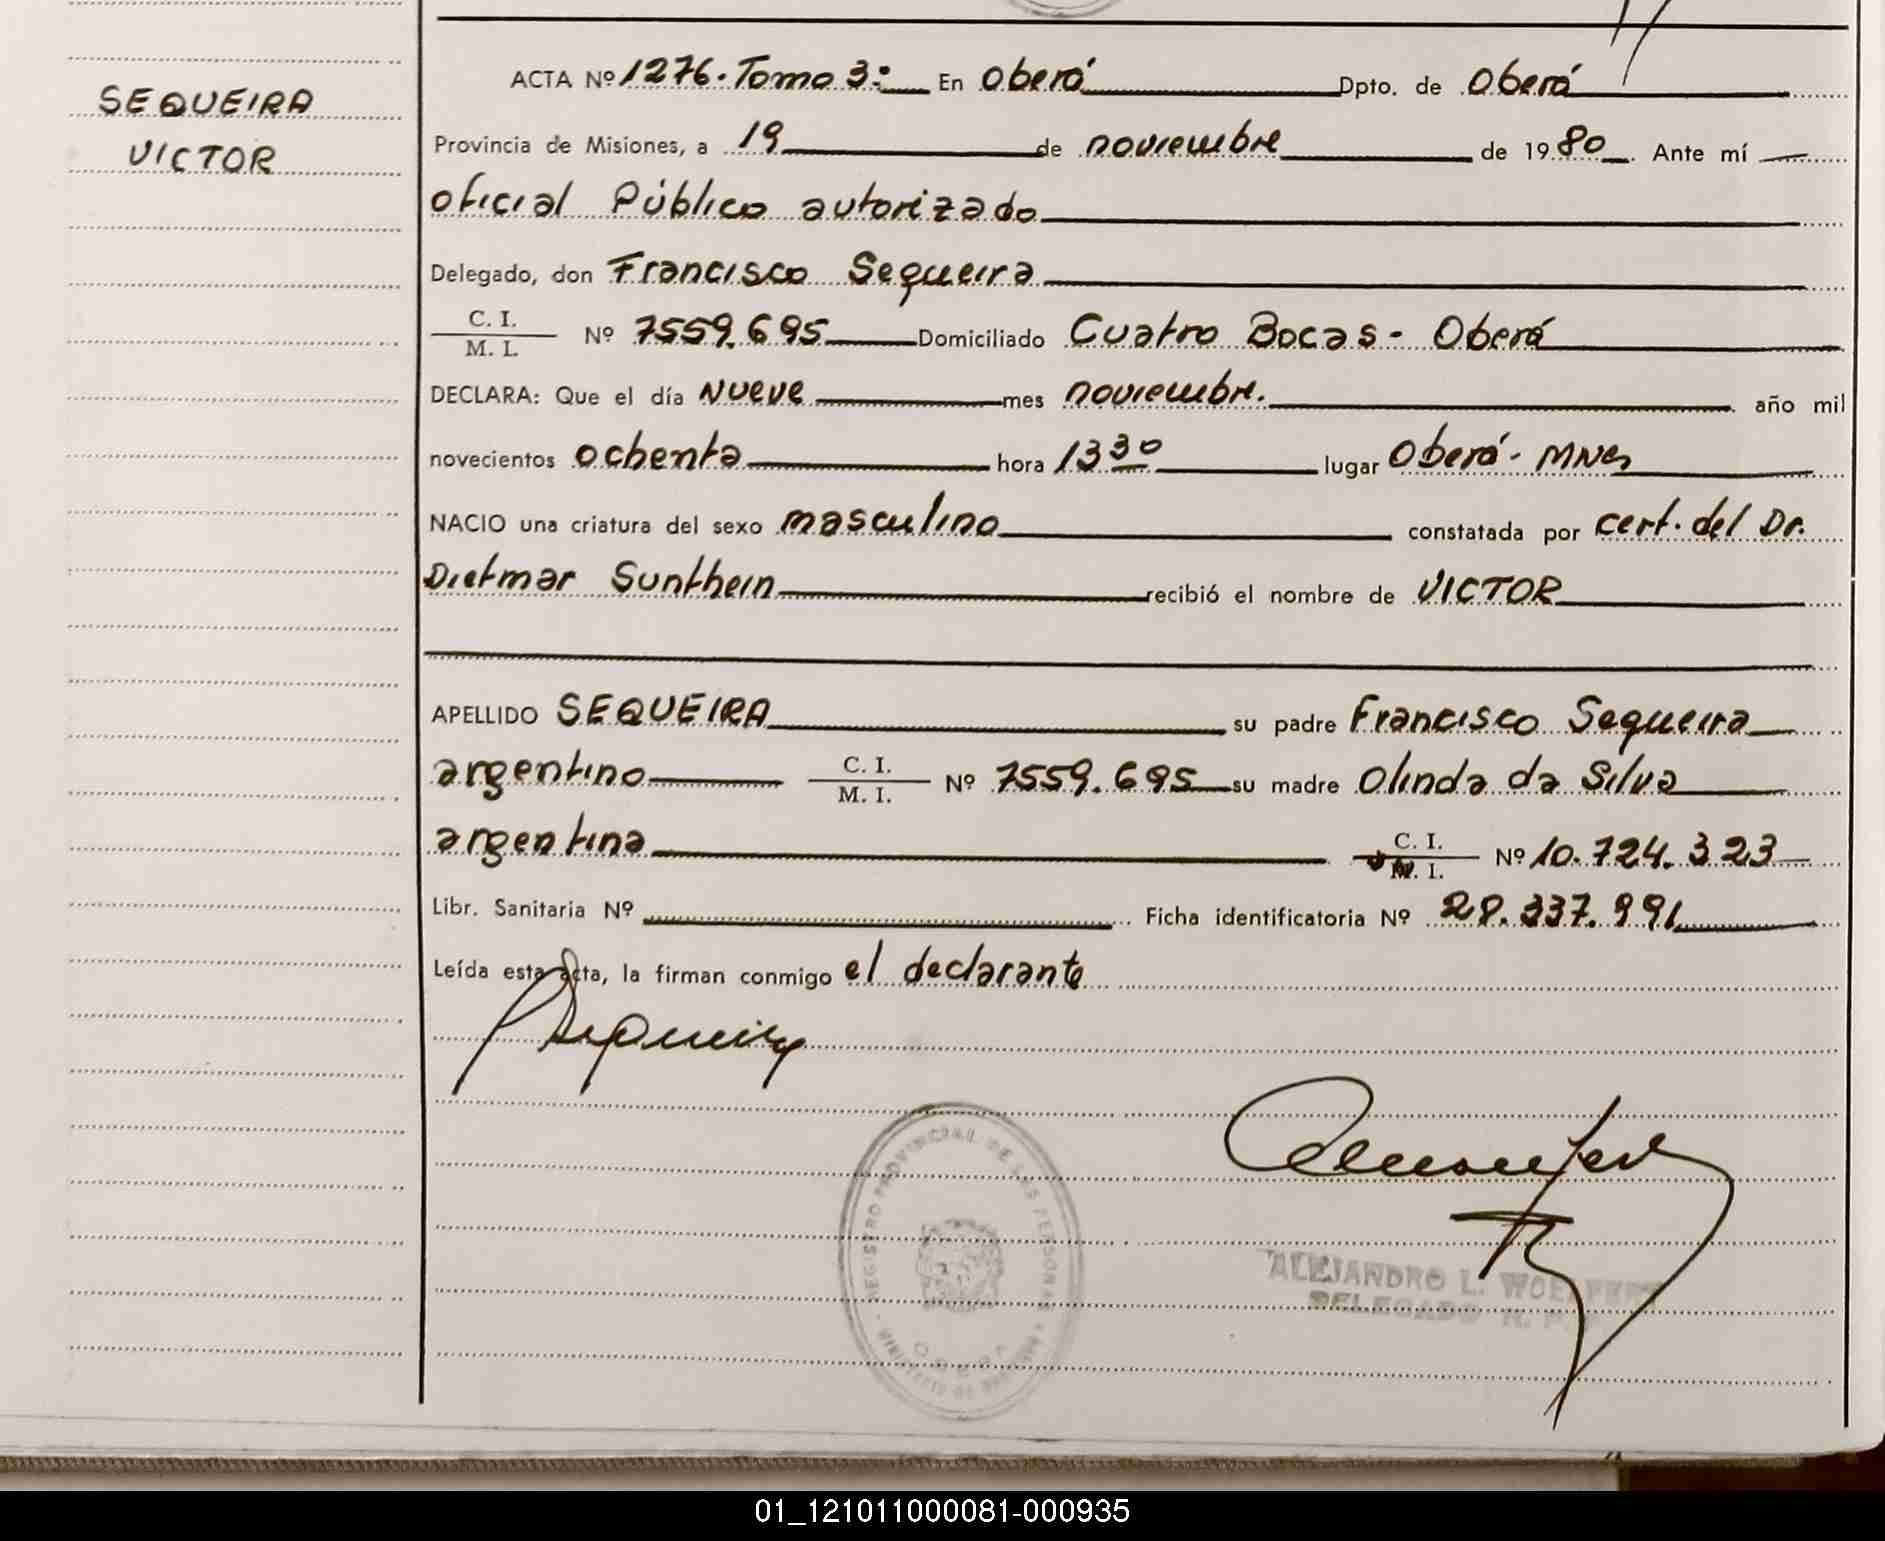 SEQUEIRA
VICTOR
ACTA Nº 1276. Tomo 3: En Oberá Dpto. de Oberá
Provincia de Misiones, a 19 de noviembre de 1980. Ante mí
oficial Público autorizado
Delegado, don Francisco Sequeira
C. I.
M. I. Nº 7559.695 Domiciliado Cuatro Bocas - Oberá
DECLARA: Que el día Nueve mes noviembre. año mil
novecientos ochenta hora 13 30 lugar Oberá - MNes
NACIO una criatura del sexo masculino constatada por cert. del Dr.
Dietmar Sunthein recibió el nombre de VICTOR
APELLIDO SEQUEIRA su padre Francisco Sequeira
argentino C. I.
M. I. Nº 7559.695 su madre Olinda da Silva
argentina C. I.
M. I. Nº 10.724.323
Libr. Sanitaria Nº Ficha identificatoria Nº 28.337.991
Leída esta acta, la firman conmigo el declarante
Sequeira
REGISTRO PROVINCIAL DE LAS PERSONAS
ALEJANDRO L. WOELFERT
DELEGADO R. P. P.
01_121011000081-000935